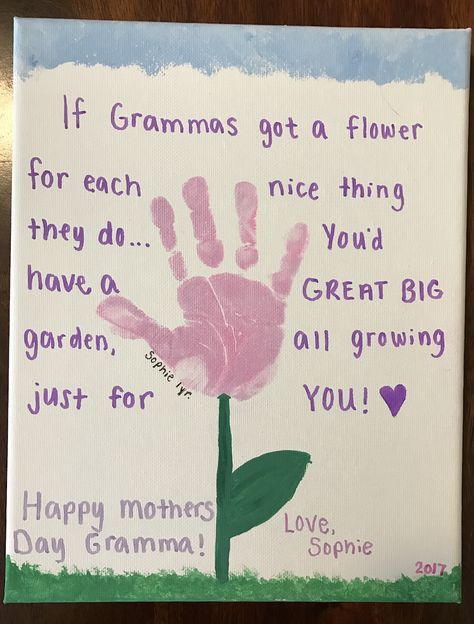 If Grammas got a flower
for each nice thing
they do... You'd
have a GREAT BIG
garden, all growing
just for YOU!
Sophie 1yr.
Happy mothers
Day Gramma!
Love,
Sophie
2017